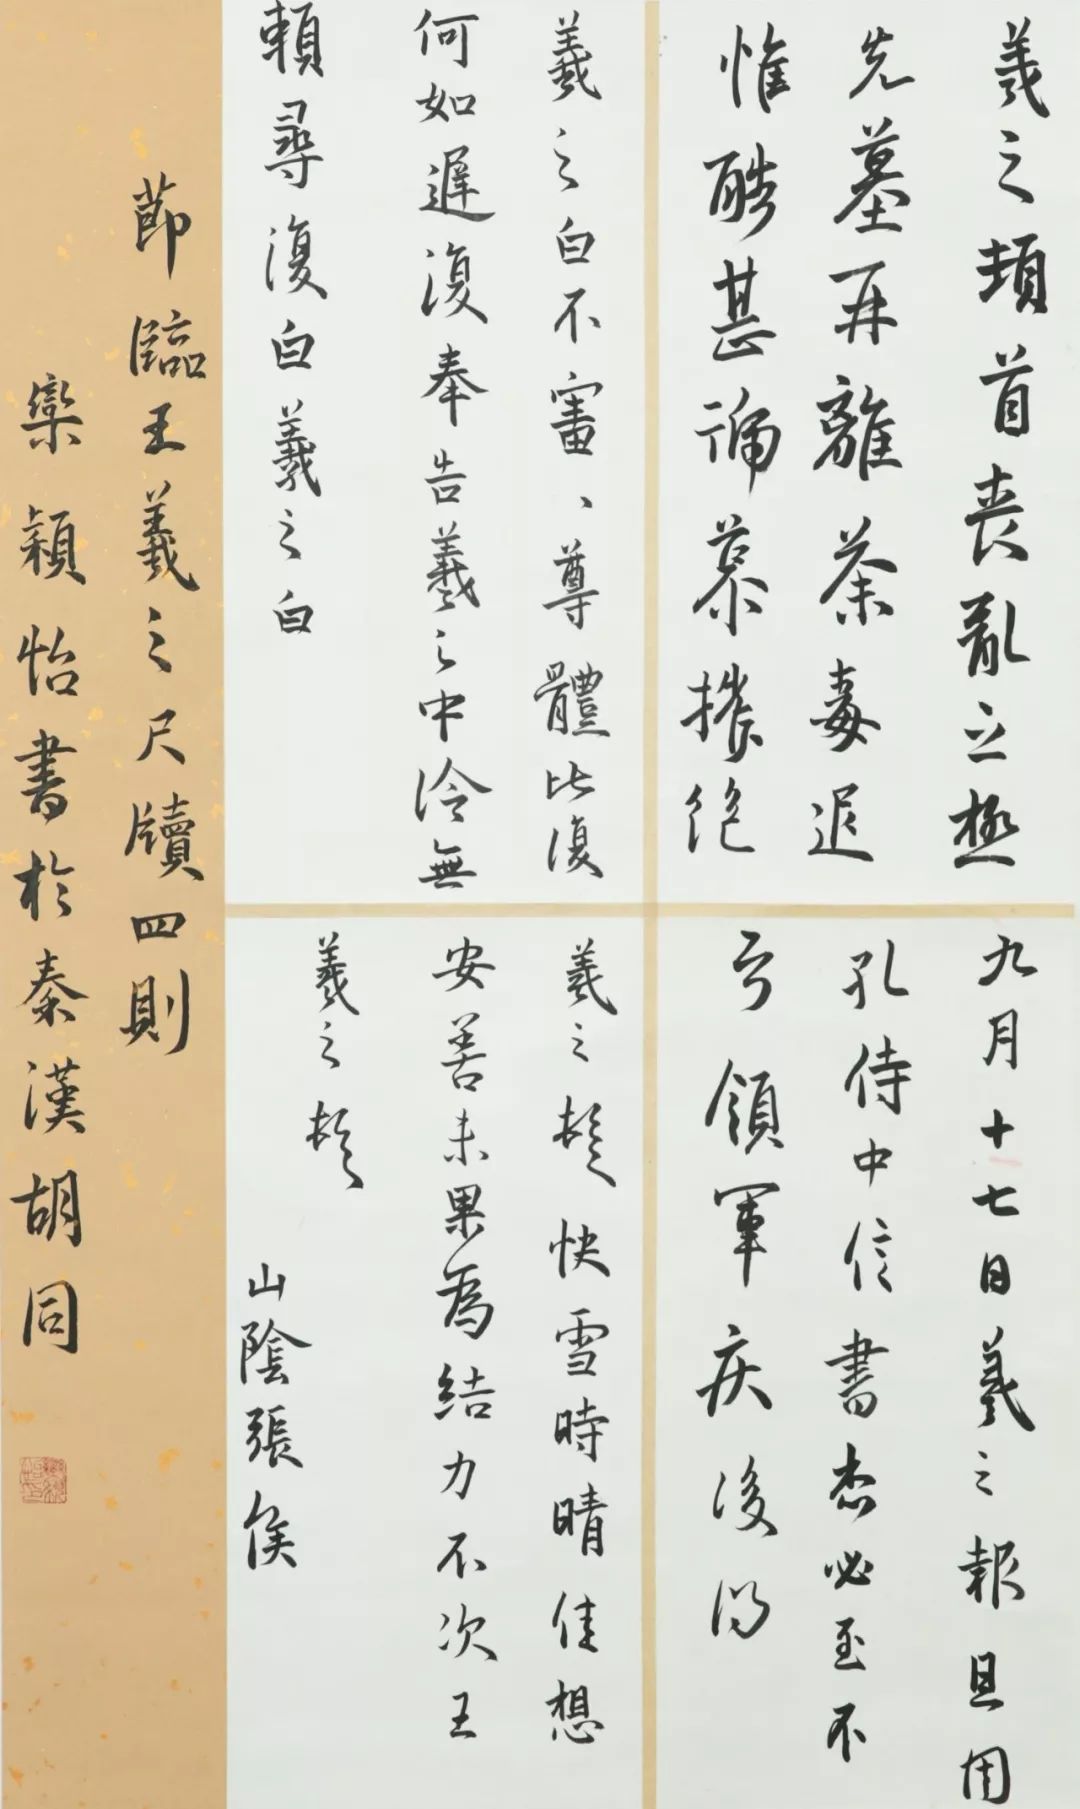 羲之頓首喪亂之極
先墓再離荼毒追
惟酷甚號慕摧絕
九月十七日羲之報且因
孔侍中信書想必至不
知領軍疾後問
羲之白不審、尊體比復
何如遲復奉告羲之中冷無
賴尋復白羲之白
羲之頓首快雪時晴佳想
安善未果為結力不次王
羲之頓首
山陰張侯
節臨王羲之尺牘四則
欒穎怡書於秦漢胡同